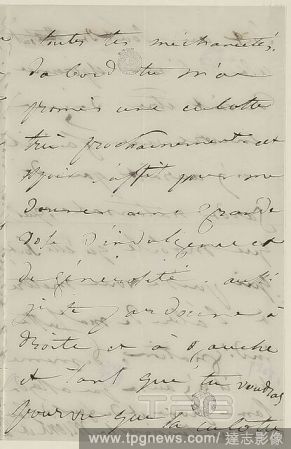 toutes tes méchancetés.
D'abord tu m'as
promis une culotte
très prochainement et
puis il suffit pour me
donner une grande
dose d'indulgence et
de générosité aussi
je te pardonne à
droite et à gauche
et tant que tu voudras
pourvu que ta culotte
TPG
www.tpgnews.com / 達志影像